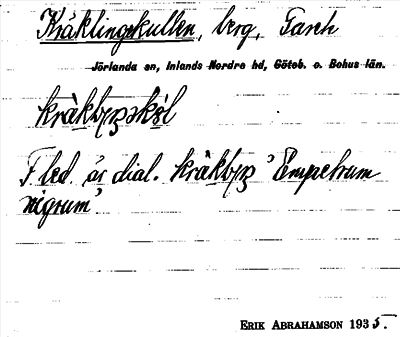 Kräklingekullen, berg, Tarch
Jörlanda sn, Inlands Nordre hd, Göteb. o. Bohus län.
F led. är dial. 'Empetrum
nigrum'
ERIK ABRAHAMSON 1935.